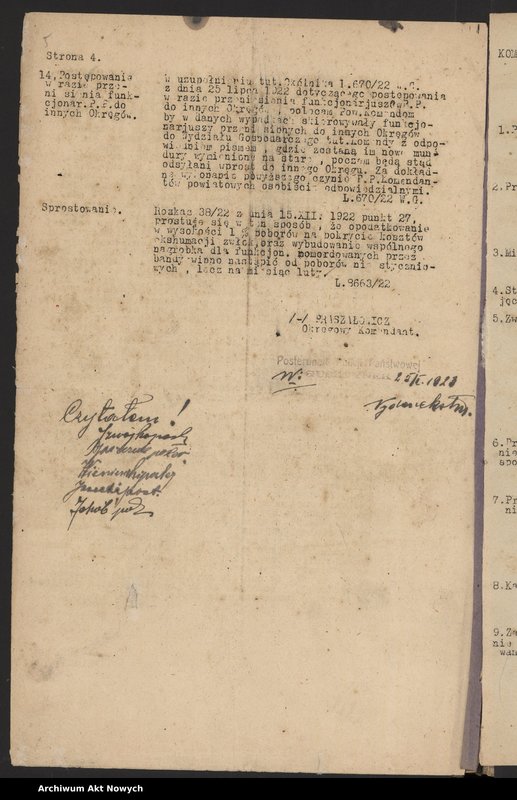 Strona 4.
14. Postępowanie
w razie prze-
ni si nia funk-
cjonar.P.P.do
innych Okręgów.
w uzupełni niu tut.Okólnika L.670/22 W.G.
z dnia 25 lipca 1922 dotyczącego postępowania
w razie prz ni si nia funkcjonarjuszów P.P.
do innych Okręgów , polecam Pow.Komendom
by w danych wypadkach skierowywały funkcjo-
narjuszy prz ni sionych do innych Okręgów
do Wydziału Gospodarczego tut.Komendy z odpo-
wi dnim pismem , gdzie zostaną im nowe mun-
dury wymienione na stare , poczem będą stąd
odsyłani wprost do innego Okręgu. Za dokład-
ne wykonanie powyższego czynię P.P.Komendan-
tów powiatowych osobiście odpowiedzialnymi.
L.670/22 W.G.
Sprostowanie.
Rozkaz 38/22 z dnia 15.XII. 1922 punkt 27,
prostuje się w ten sposób , że opodatkowanie
w wysokości 1 % poborów na pokrycie kosztów
ekshumacji zwłok,oraz wybudowanie wspólnego
nagrobka dla funkcjon. pomordowanych przez
bandy winno nastąpić od poborów ni stycznio-
wych , lecz na miesiąc luty.
L.8663/22
/-/ PRASZAŁOWICZ
Okręgowy Komendant.
Posterunek Policji Państwowej
Nr.
1923
Czytałem!
Jakób
KOM
1.P
2.Pr
3.Mi
4.St
jęc
5.Zw
6.Pr
nia
spo
7.Pr
ni
8.Ka
9.Za
nie
wan
Archiwum Akt Nowych